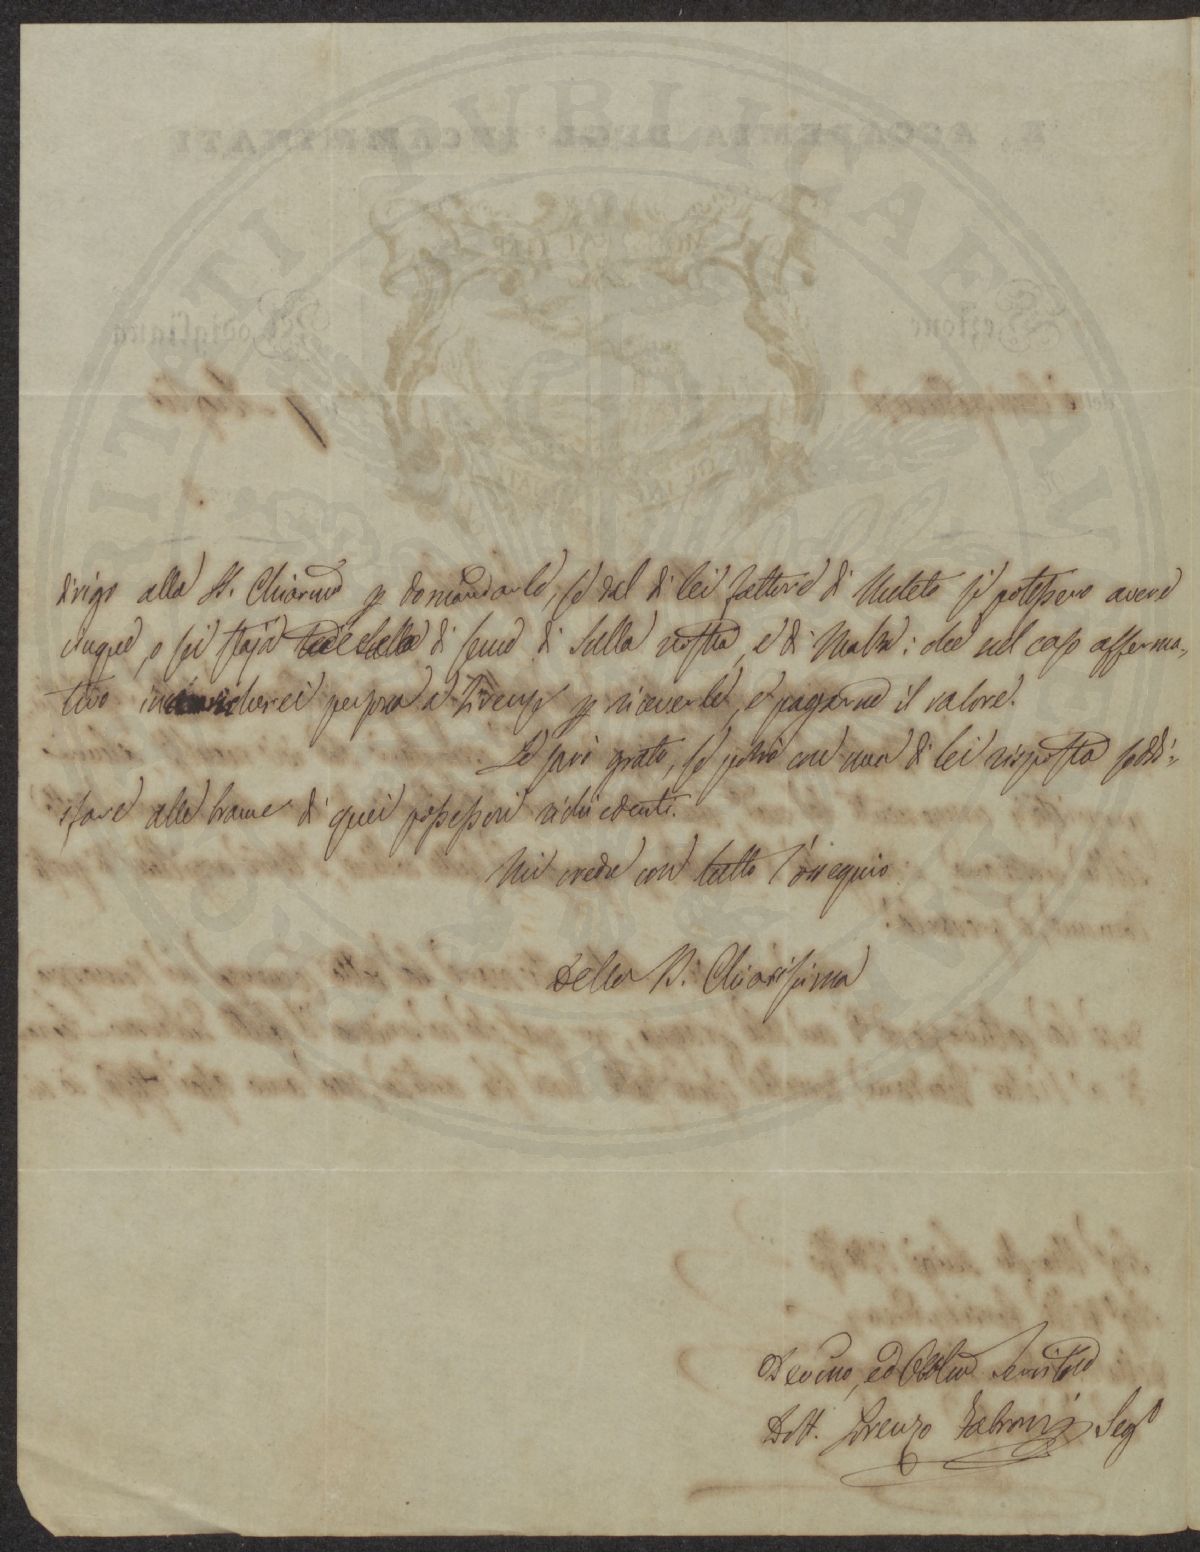 dirigo alla V. Chiarma p domandarle, se dal di lei fattore di Meleto si potessero avere
cinque, o sei staja di seme di Sulla nostra, e di Malta: che nel caso afferma=
tivo incaricherei persona a Firenze p riceverle, e pagarne il valore.
Le sarò grato, se potrò con una di lei risposta soddi=
sfare alle brame di quei possessori richiedenti.
Mi creda con tutto l'ossequio
Della V. Chiarissima
Devmo, ed Obblmo Servitore
Dott. Lorenzo Fabroni Segr